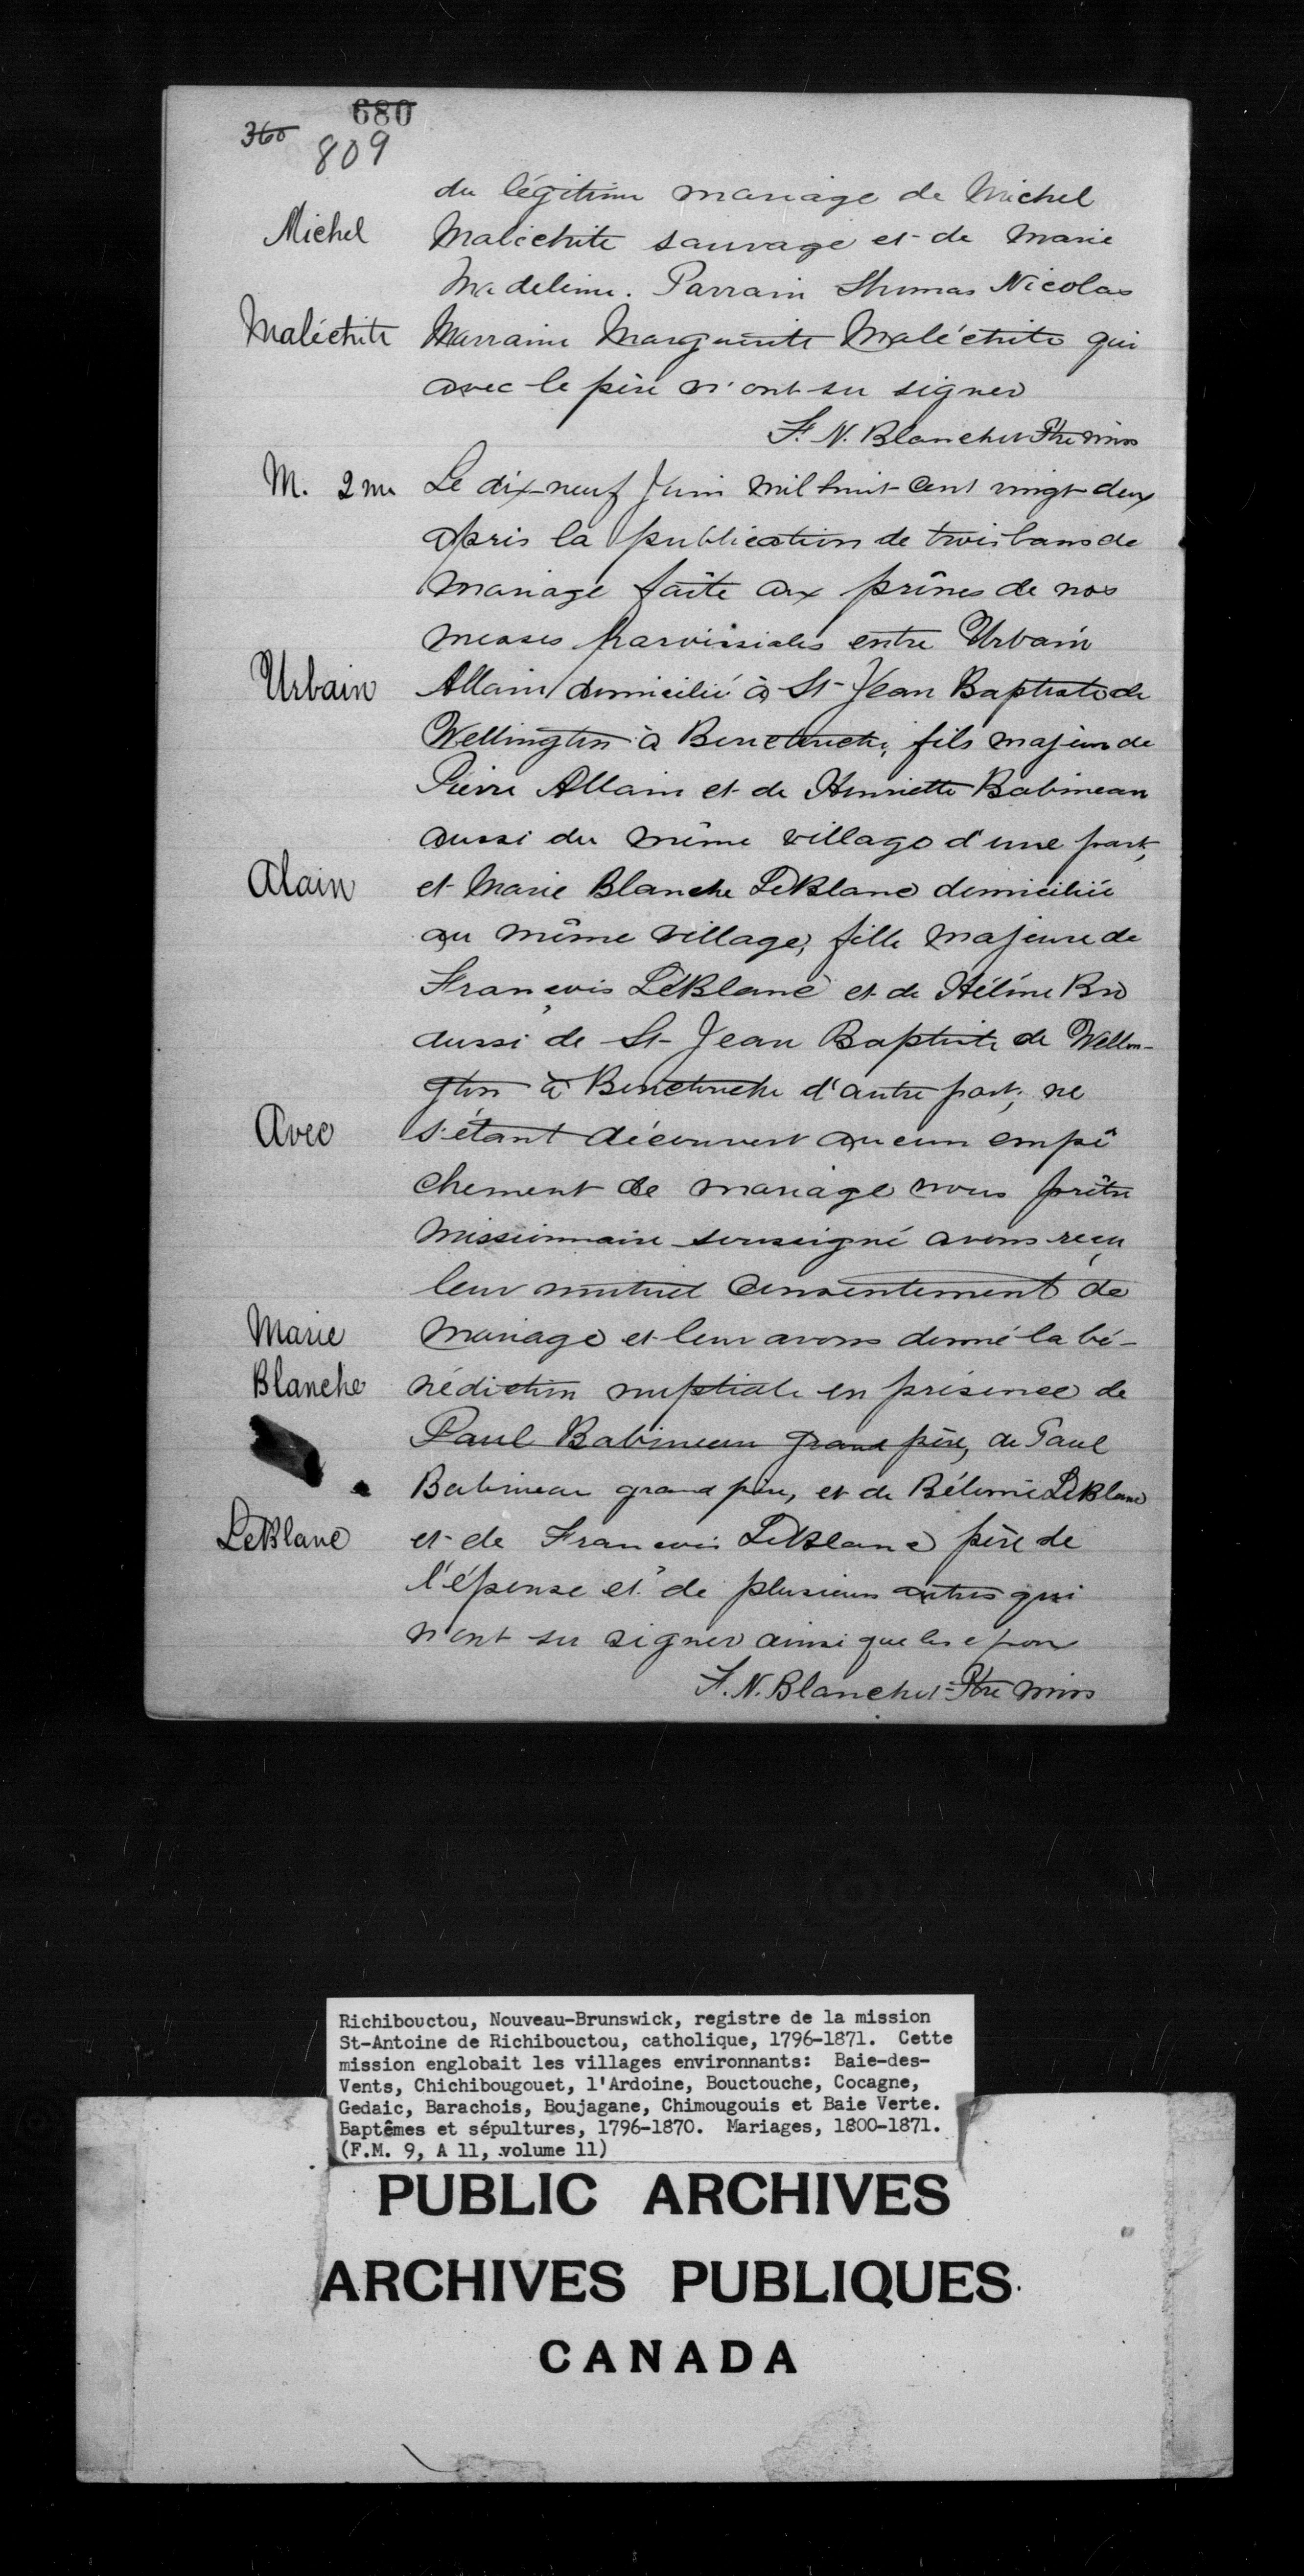 680
360
809
du légitime mariage de Michel
Michel
Malechite sauvage et de Marie
Madeleine. Parrain Thomas Nicolas
Maléchite
Marraine Marguerite Maléchite qui
avec le père n'ont su signer
F. N. Blanchet Ptre miss
M. 2me
Le dix-neuf Juin mil huit-cent vingt-deux
après la publication de trois bans de
mariage faîte aux prônes de nos
messes paroissiales entre Urbain
Urbain
Allain domicilié à St-Jean Baptiste de
Wellington à Bouctouche, fils majeur de
Pierre Allain et de Henriette Babineau
aussi du même village d'une part,
Alain
et Marie Blanche LeBlanc domiciliée
au même village, fille majeure de
François LeBlanc et de Hélène
aussi de St-Jean Baptiste de Wellin-
gton à Bouctouche d'autre part; ne
Avec
s'étant découvert aucun empê
chement de mariage nous prêtre
missionnaire soussigné avons reçu
leur mutuel consentement de
Marie
mariage et leur avons donné la bé-
Blanche
nédiction nuptiale en présence de
Paul Babineau grand père, de Paul
Babineau grand père, et de Bélonie LeBlanc
LeBlanc
et de François LeBlanc père de
l'épouse et de plusieurs autres qui
n'ont su signer ainsi que les epoux
F. N. Blanchet Ptre miss
Richibouctou, Nouveau-Brunswick, registre de la mission
St-Antoine de Richibouctou, catholique, 1796-1871. Cette
mission englobait les villages environnants: Baie-des-
Vents, Chichibougouet, l'Ardoine, Bouctouche, Cocagne,
Gedaic, Barachois, Boujagane, Chimougouis et Baie Verte.
Baptêmes et sépultures, 1796-1870. Mariages, 1800-1871.
(F.M. 9, A 11, volume 11)
PUBLIC ARCHIVES
ARCHIVES PUBLIQUES
CANADA